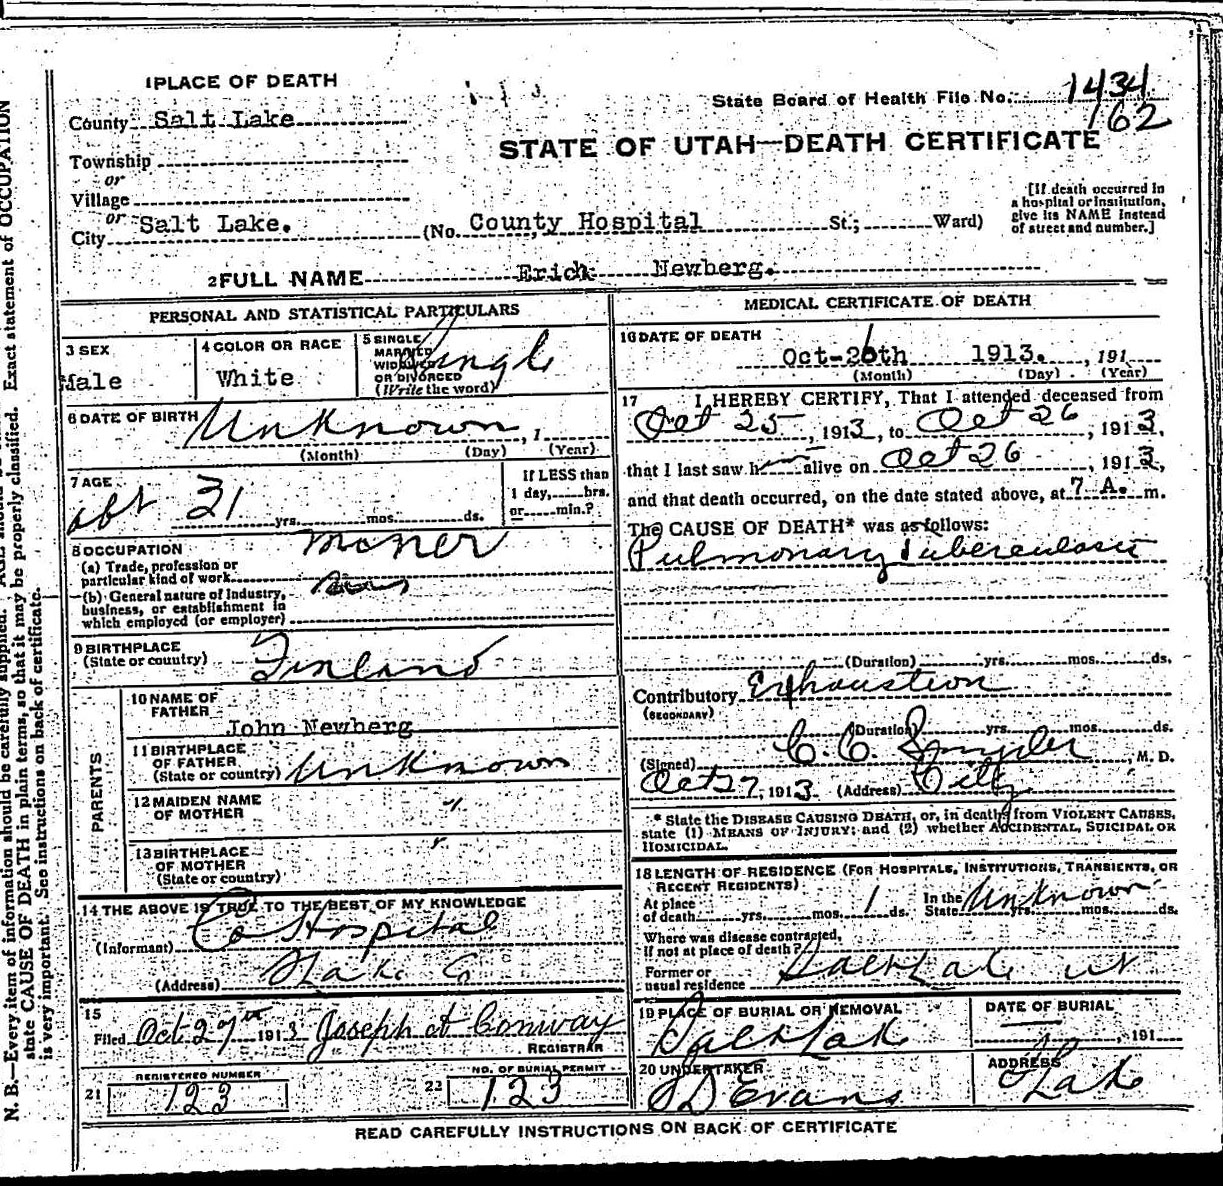 1 PLACE OF DEATH
State Board of Health File No. 1434
162
County Salt Lake
STATE OF UTAH—DEATH CERTIFICATE
Township
or
Village
or
City Salt Lake. (No. County Hospital St.; Ward)
[If death occurred in
a hospital or institution,
give its NAME instead
of street and number.]
2 FULL NAME Erich Newberg.
PERSONAL AND STATISTICAL PARTICULARS
3 SEX
Male
4 COLOR OR RACE
White
5 SINGLE
MARRIED
WIDOWED
OR DIVORCED
(Write the word)
Single
6 DATE OF BIRTH Unknown, 1
(Month) (Day) (Year)
7 AGE
abt 31 yrs. mos. ds.
If LESS than
1 day, hrs.
or min.?
8 OCCUPATION
(a) Trade, profession or
particular kind of work
Miner
(b) General nature of Industry,
business, or establishment in
which employed (or employer)
9 BIRTHPLACE
(State or country) Finland
PARENTS
10 NAME OF
FATHER
John Newberg
11 BIRTHPLACE
OF FATHER
(State or country) Unknown
12 MAIDEN NAME
OF MOTHER "
13 BIRTHPLACE
OF MOTHER
(State or country) "
14 THE ABOVE IS TRUE TO THE BEST OF MY KNOWLEDGE
(Informant) Co Hospital
(Address) S Lake Co
15
Filed Oct 27th 1913 Joseph A Conway
REGISTRAR
21 REGISTERED NUMBER
123
22 NO. OF BURIAL PERMIT
123
MEDICAL CERTIFICATE OF DEATH
16 DATE OF DEATH
Oct-26th 1913. , 191
(Month) (Day) (Year)
17 I HEREBY CERTIFY, That I attended deceased from
Oct 25, 1913, to Oct 26, 1913,
that I last saw him alive on Oct 26, 1913,
and that death occurred, on the date stated above, at 7 A. m.
The CAUSE OF DEATH* was as follows:
Pulmonary Tuberculosis
(Duration) yrs. mos. ds.
Contributory Exhaustion
(SECONDARY)
(Duration) yrs. mos. ds.
(Signed) C. C. Snyder, M. D.
Oct 27, 1913 (Address) City
* State the DISEASE CAUSING DEATH, or, in deaths from VIOLENT CAUSES,
state (1) MEANS OF INJURY; and (2) whether ACCIDENTAL, SUICIDAL OR
HOMICIDAL.
18 LENGTH OF RESIDENCE (FOR HOSPITALS, INSTITUTIONS, TRANSIENTS, OR
RECENT RESIDENTS)
At place
of death yrs. mos. 1 ds. In the
State Unknown yrs. mos. ds.
Where was disease contracted,
if not at place of death?
Former or
usual residence Salt Lake Ut
19 PLACE OF BURIAL OR REMOVAL
Salt Lake
DATE OF BURIAL
, 191
20 UNDERTAKER
S D Evans
ADDRESS
S Lake
READ CAREFULLY INSTRUCTIONS ON BACK OF CERTIFICATE
N. B.—Every item of information should be carefully supplied. AGE should
state CAUSE OF DEATH in plain terms, so that it may be properly classified. Exact statement of OCCUPATION
is very important. See instructions on back of certificate.